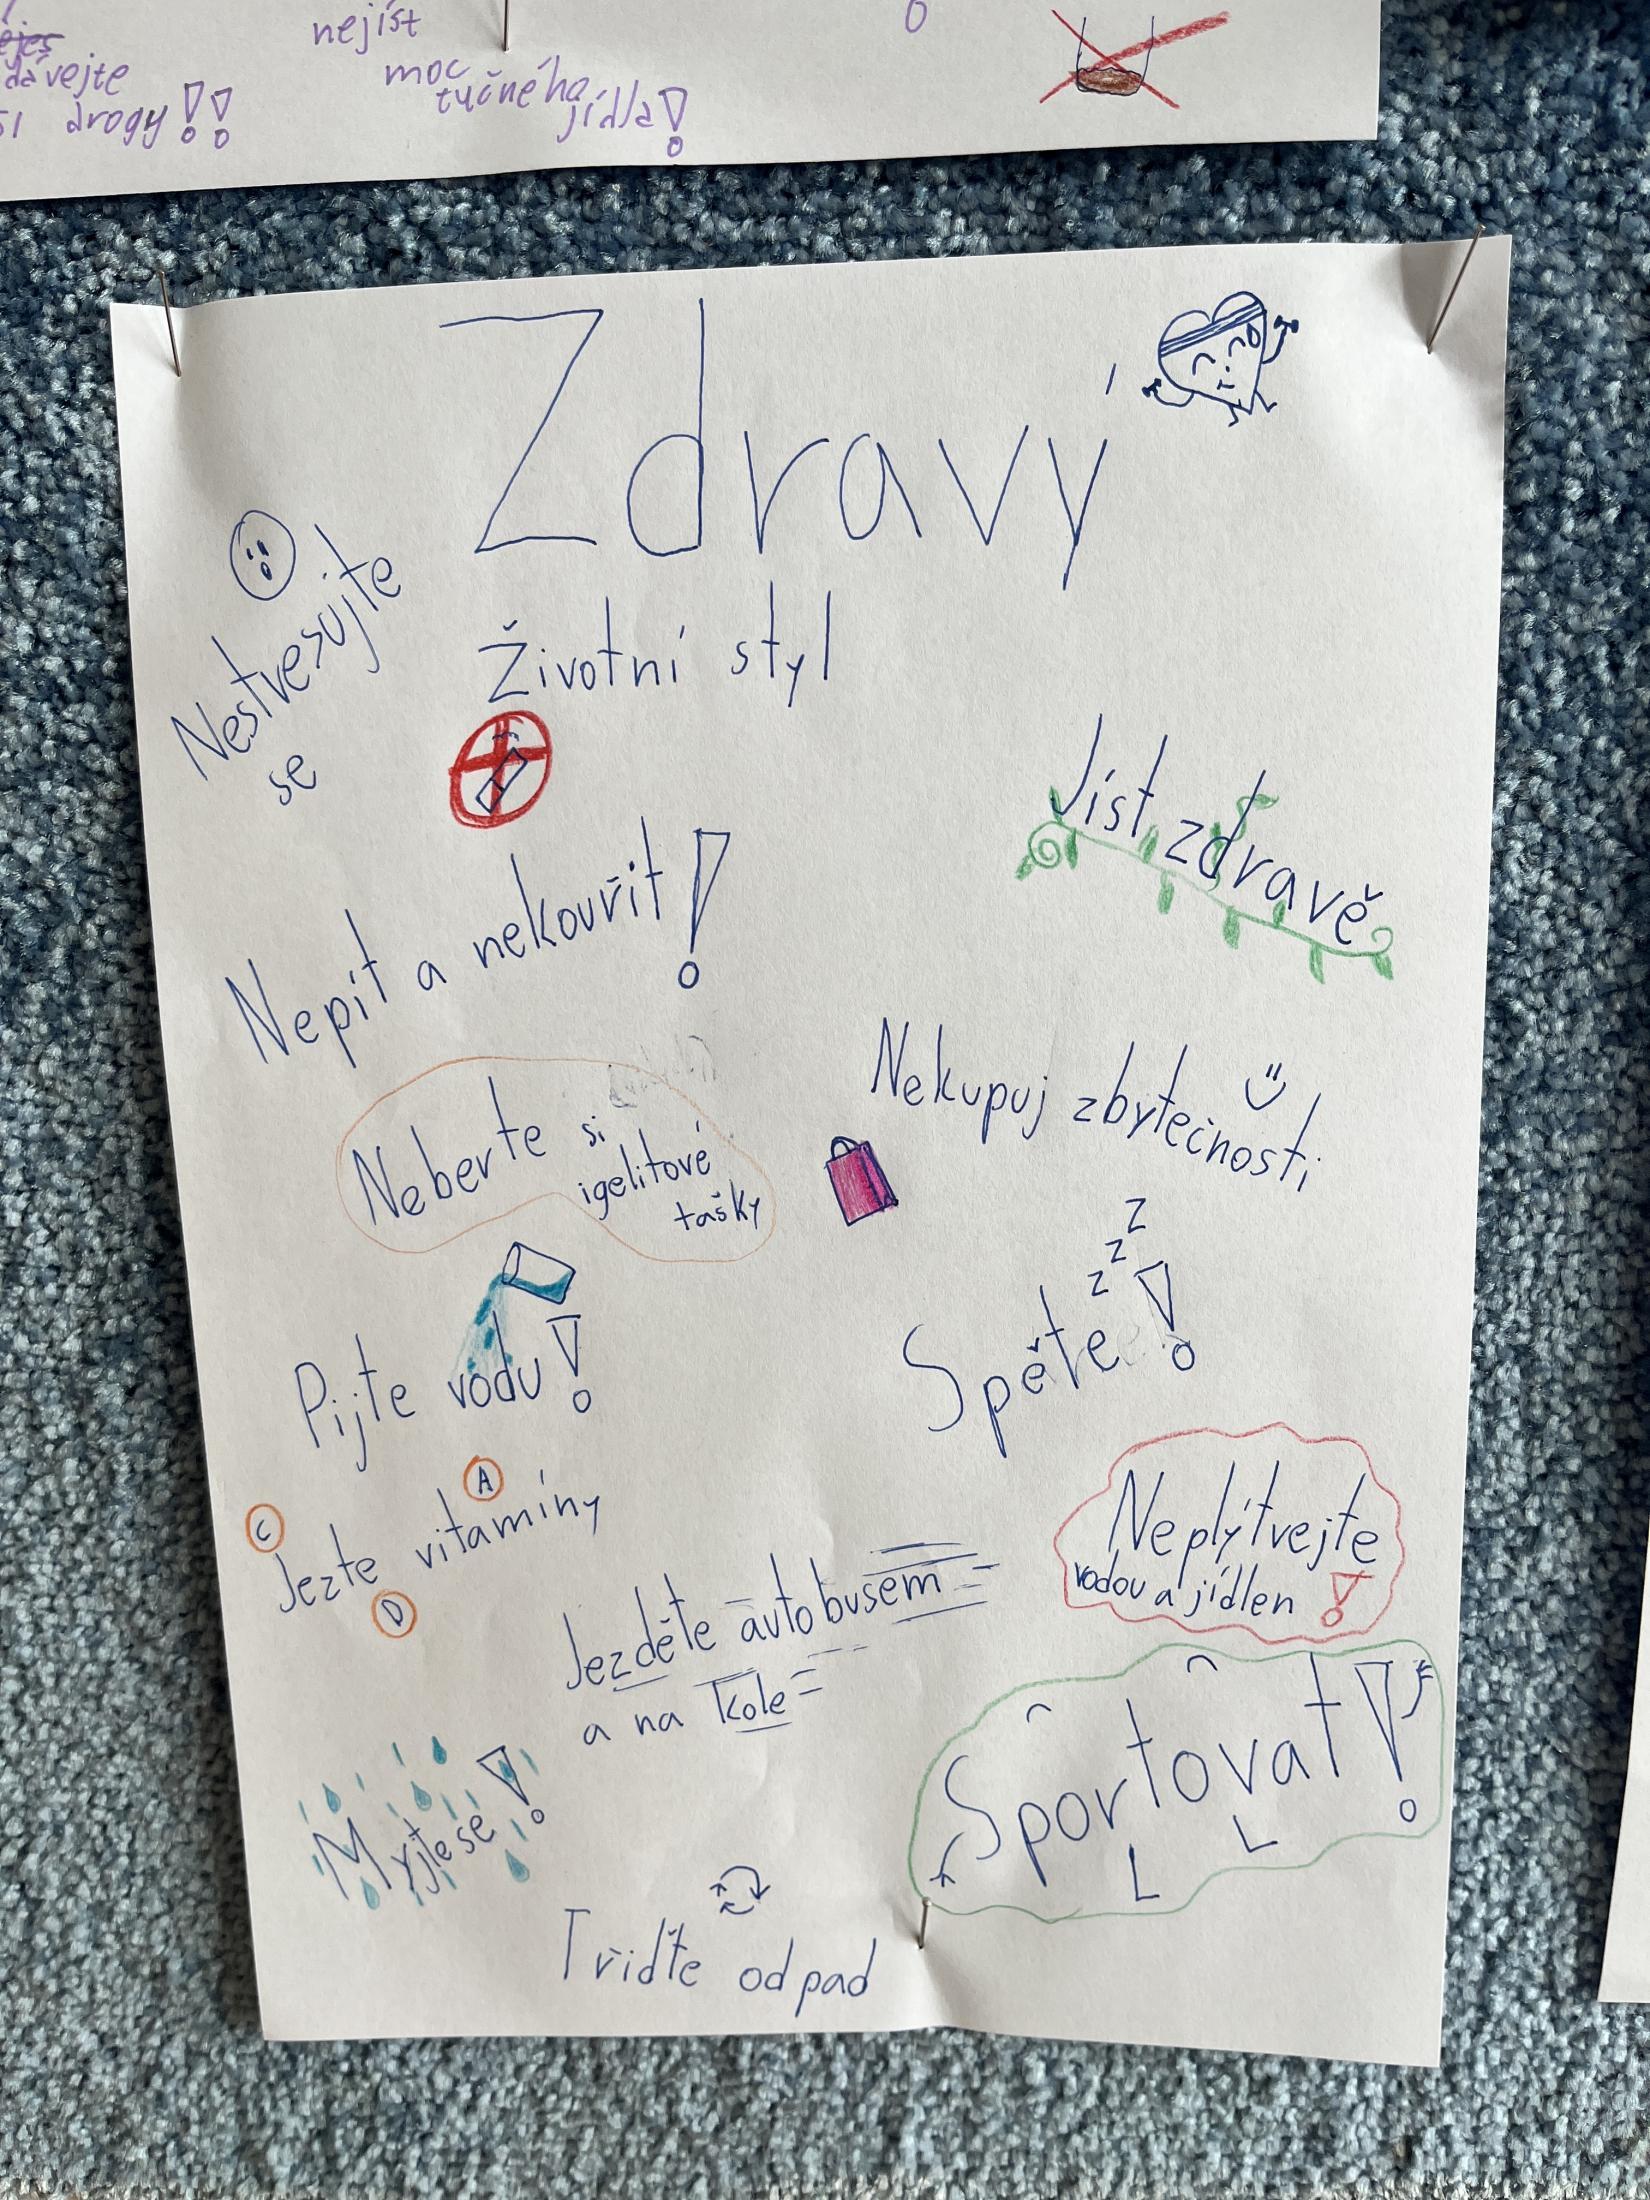 dávejte
si drogy!!
nejíst
moc
tučného
jídla!
Zdravý
Životní styl
Nestresujte
se
Jíst zdravě
Nepít a nekouřit!
Nekupuj zbytečnosti
Neberte si
igelitové
tašky
z z z
Spěte!
Pijte vodu!
A
C
Jezte vitamíny
D
Neplýtvejte
vodou a jídlen!
Jezděte autobusem
a na kole
Sportovat!
Myjte se!
Třiďte odpad